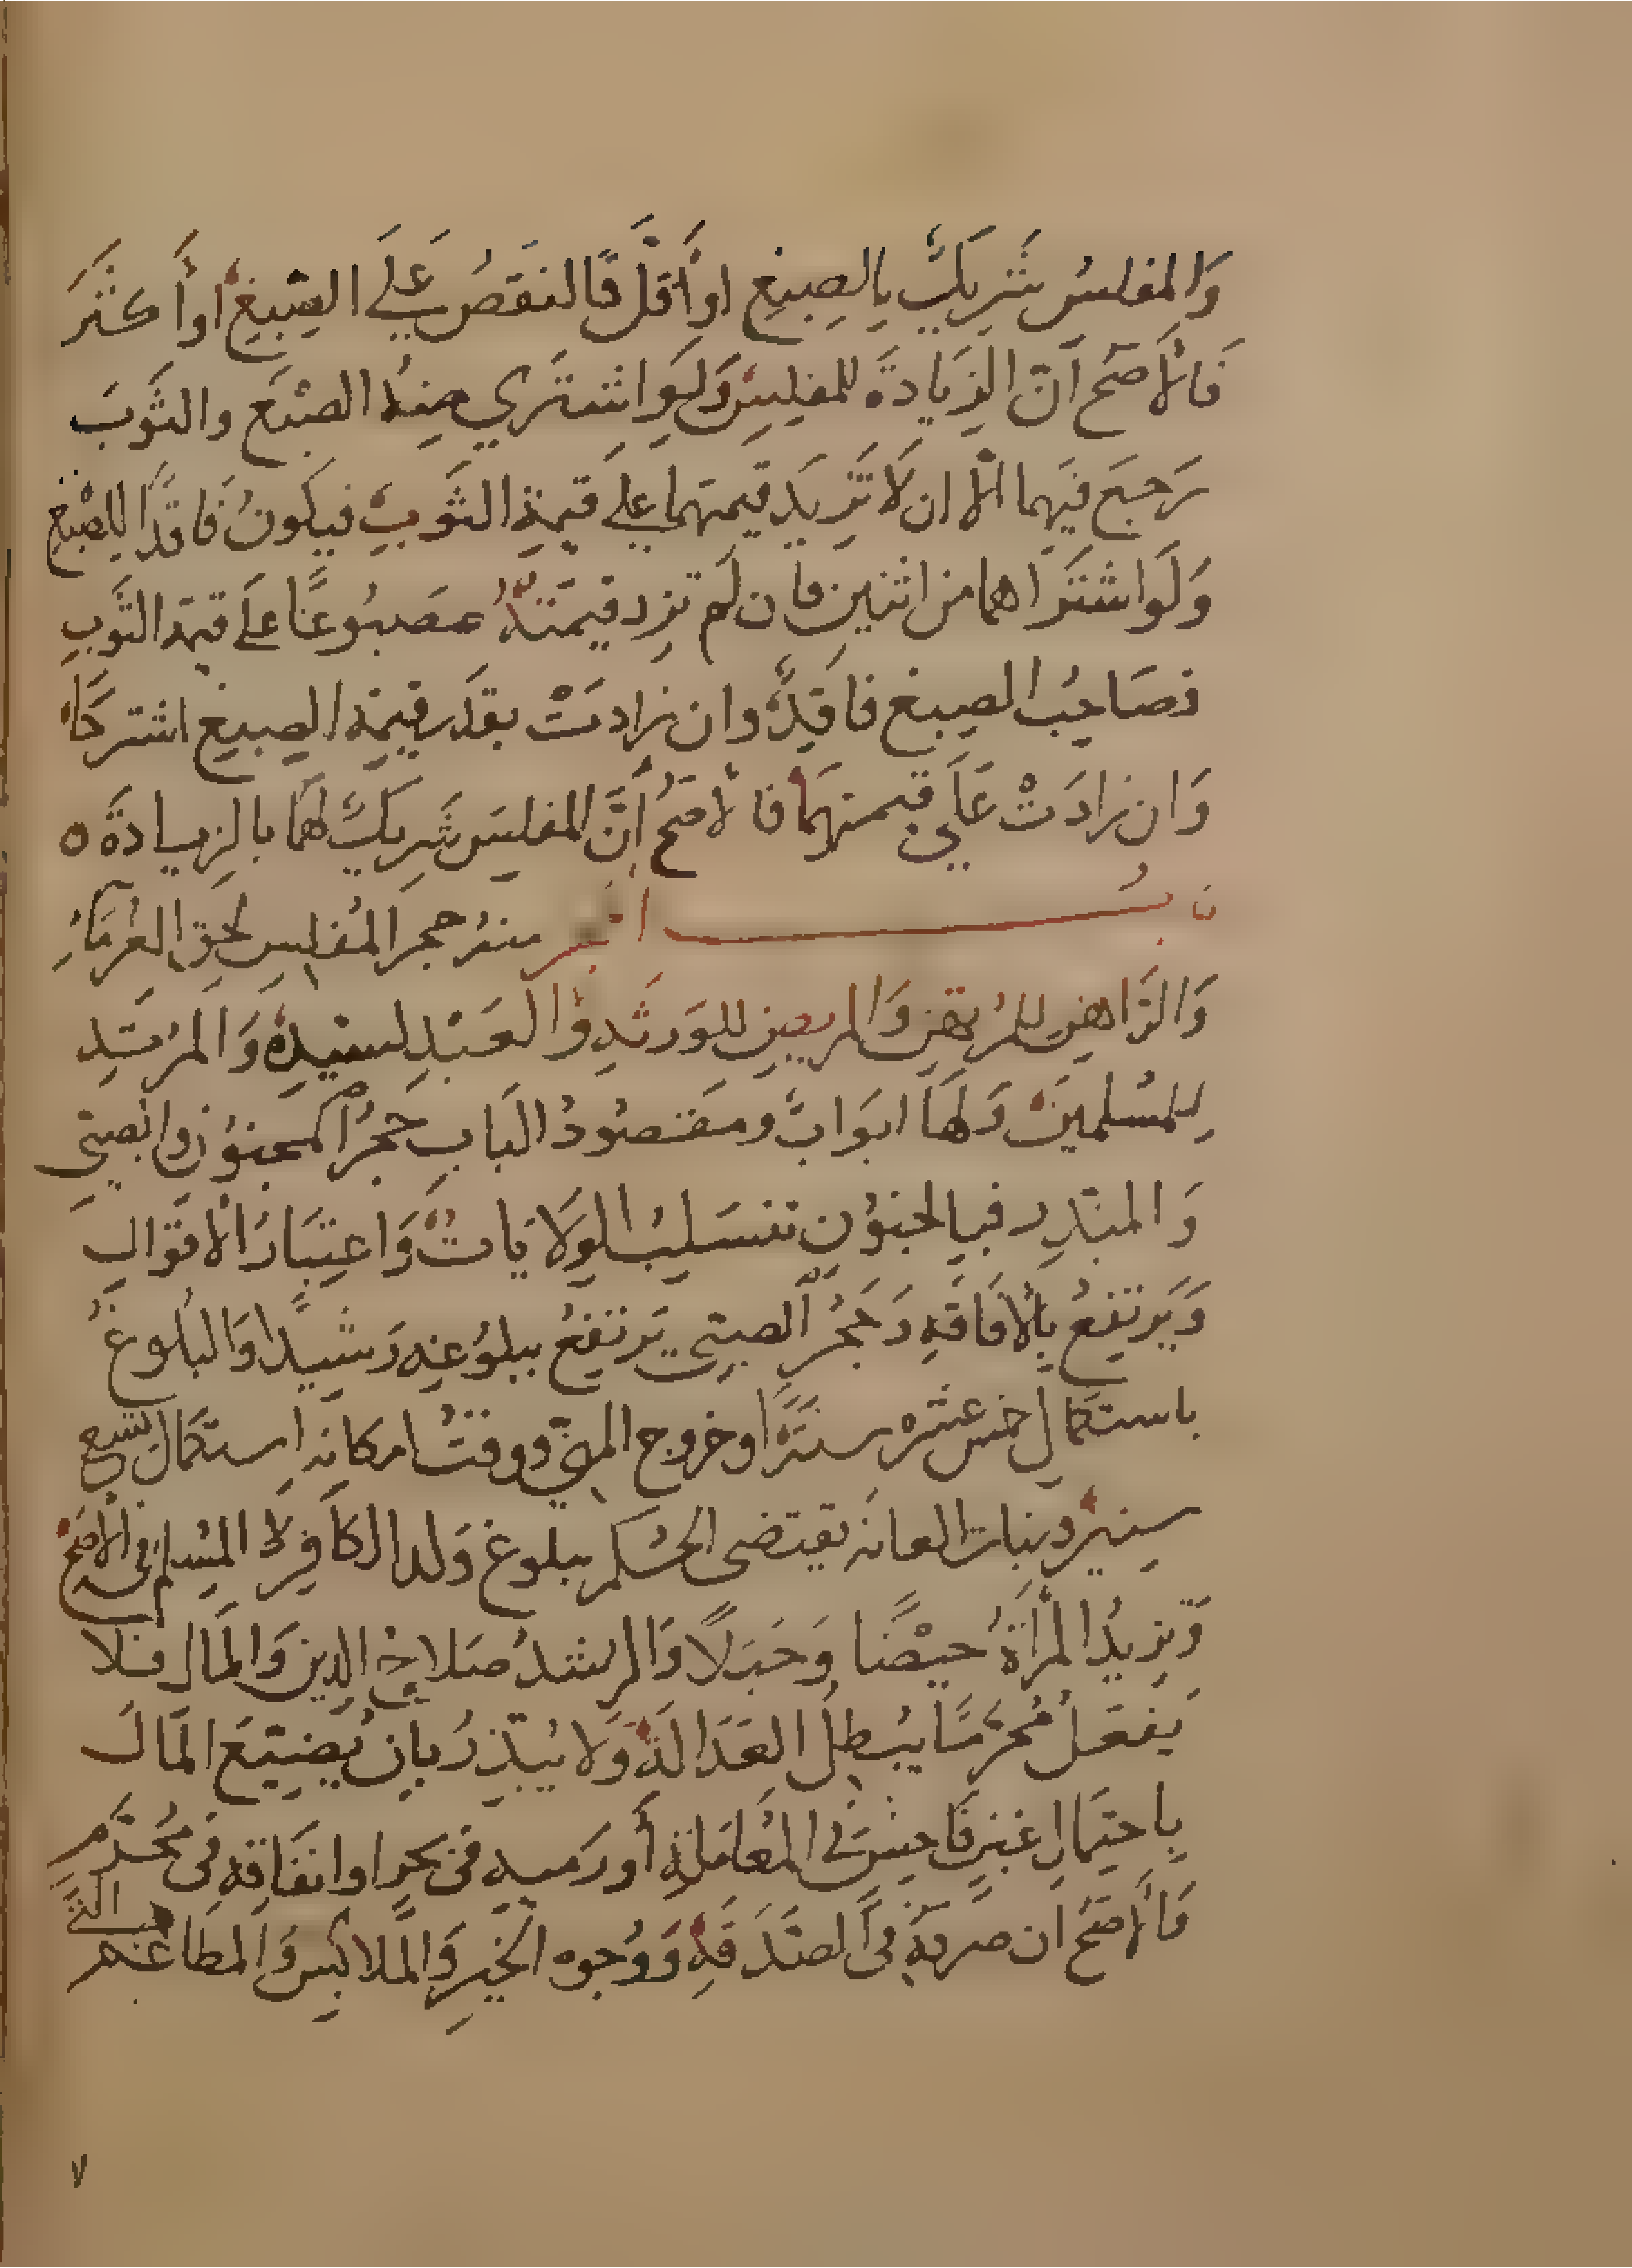 وَالمفلسُ شَرِيكٌ بِالصِبغِ اوأَقلَّ فَالنقصُ عَلَى الصِّبغِ أوأَكثَرَ
فَالأَصَحُّ أَنّ الزِيَادَةَ للمفلِسِ وَلَوِ اشتَرَي مِنهُ الصبْغَ والثَّوبَ
رَجَعَ فيَهِما الّا ان لَا تَزِيدَ قيمتهما على قيمةِ الثَوبِ فيَكونُ فَاقدًا لِلصّبْغِ
وَلَو اشتَرَاهما من اثنينِ فان لَم تزِد قيمَتهُ مَصبُوغًا على قيمة الثَّوبِ
فصَاحِبُ الصِبغ فاقِدٌ وان زادتْ بقَدَر قيمَة الصِبغ اشترَكَا
وَان زادَتْ عَلَى قيمتهِمَا فالأصَحُّ أنَّ المفلِسَ شَرِيكٌ لهُمَا بالزيادةَ ه
بَابُ الحجر منهُ حجر المُفلِسِ لحَقِ الغُرمَاءِ
وَالرَّاهنِ للمُرتَهنِ وَالمريضِ للوَرثَةِ وَالعَبْدِ لسيّدِهِ وَالمرُتَدِ
لِلمسُلمينَ وَلهَا ابَوَابٌ ومَقصُودُ البَابِ حَجْرُ المجنوُنِ والصبَيِّ
وَالمبَذِّرِ فبالجنوُنِ تنسَلِبُ الوِلَايَاتُ وَاعتِبَارُ الأقوَالِ
وَيَرتفعُ بِالأفَاقَةِ وَحَجْرُ الصبِيِّ يَرتفعُ ببلوُغِهِ رَشيدا وَالبُلُوغُ
باستكمالِ خمس عشرة سنَةً اوخروج المنِيّ ووقتُ امكانه استكمال تسع
سنين ونبات العانه يقتضى الحُكم ببلوغ وَلد الكَافِرِ لا المُسِلم فى الأصَحِّ
وَتزيدُ المرأَةُ حيْضًا وَحَبَلًا وَالرشدُ صَلاحُ الدين وَالمَال فلا
يَفعَلُ مُحرمًا يبُطِلُ العَدَالَةَ وَلا يُبَذِّرُ بان يُضَيّعَ المَالَ
باحتِمَالِ غَبنٍ فَاحِشٍ فى المُعَامَلةِ أَو رَميهِ فى بَحرٍ او انفَاقِهِ فى مُحَرَّمٍ
وَالأَصَحُّ ان صرفهُ فى الصَدَقَةِ وَوُجوه الخيرِ وَالملابِسِ وَالمطاعم التى
٧